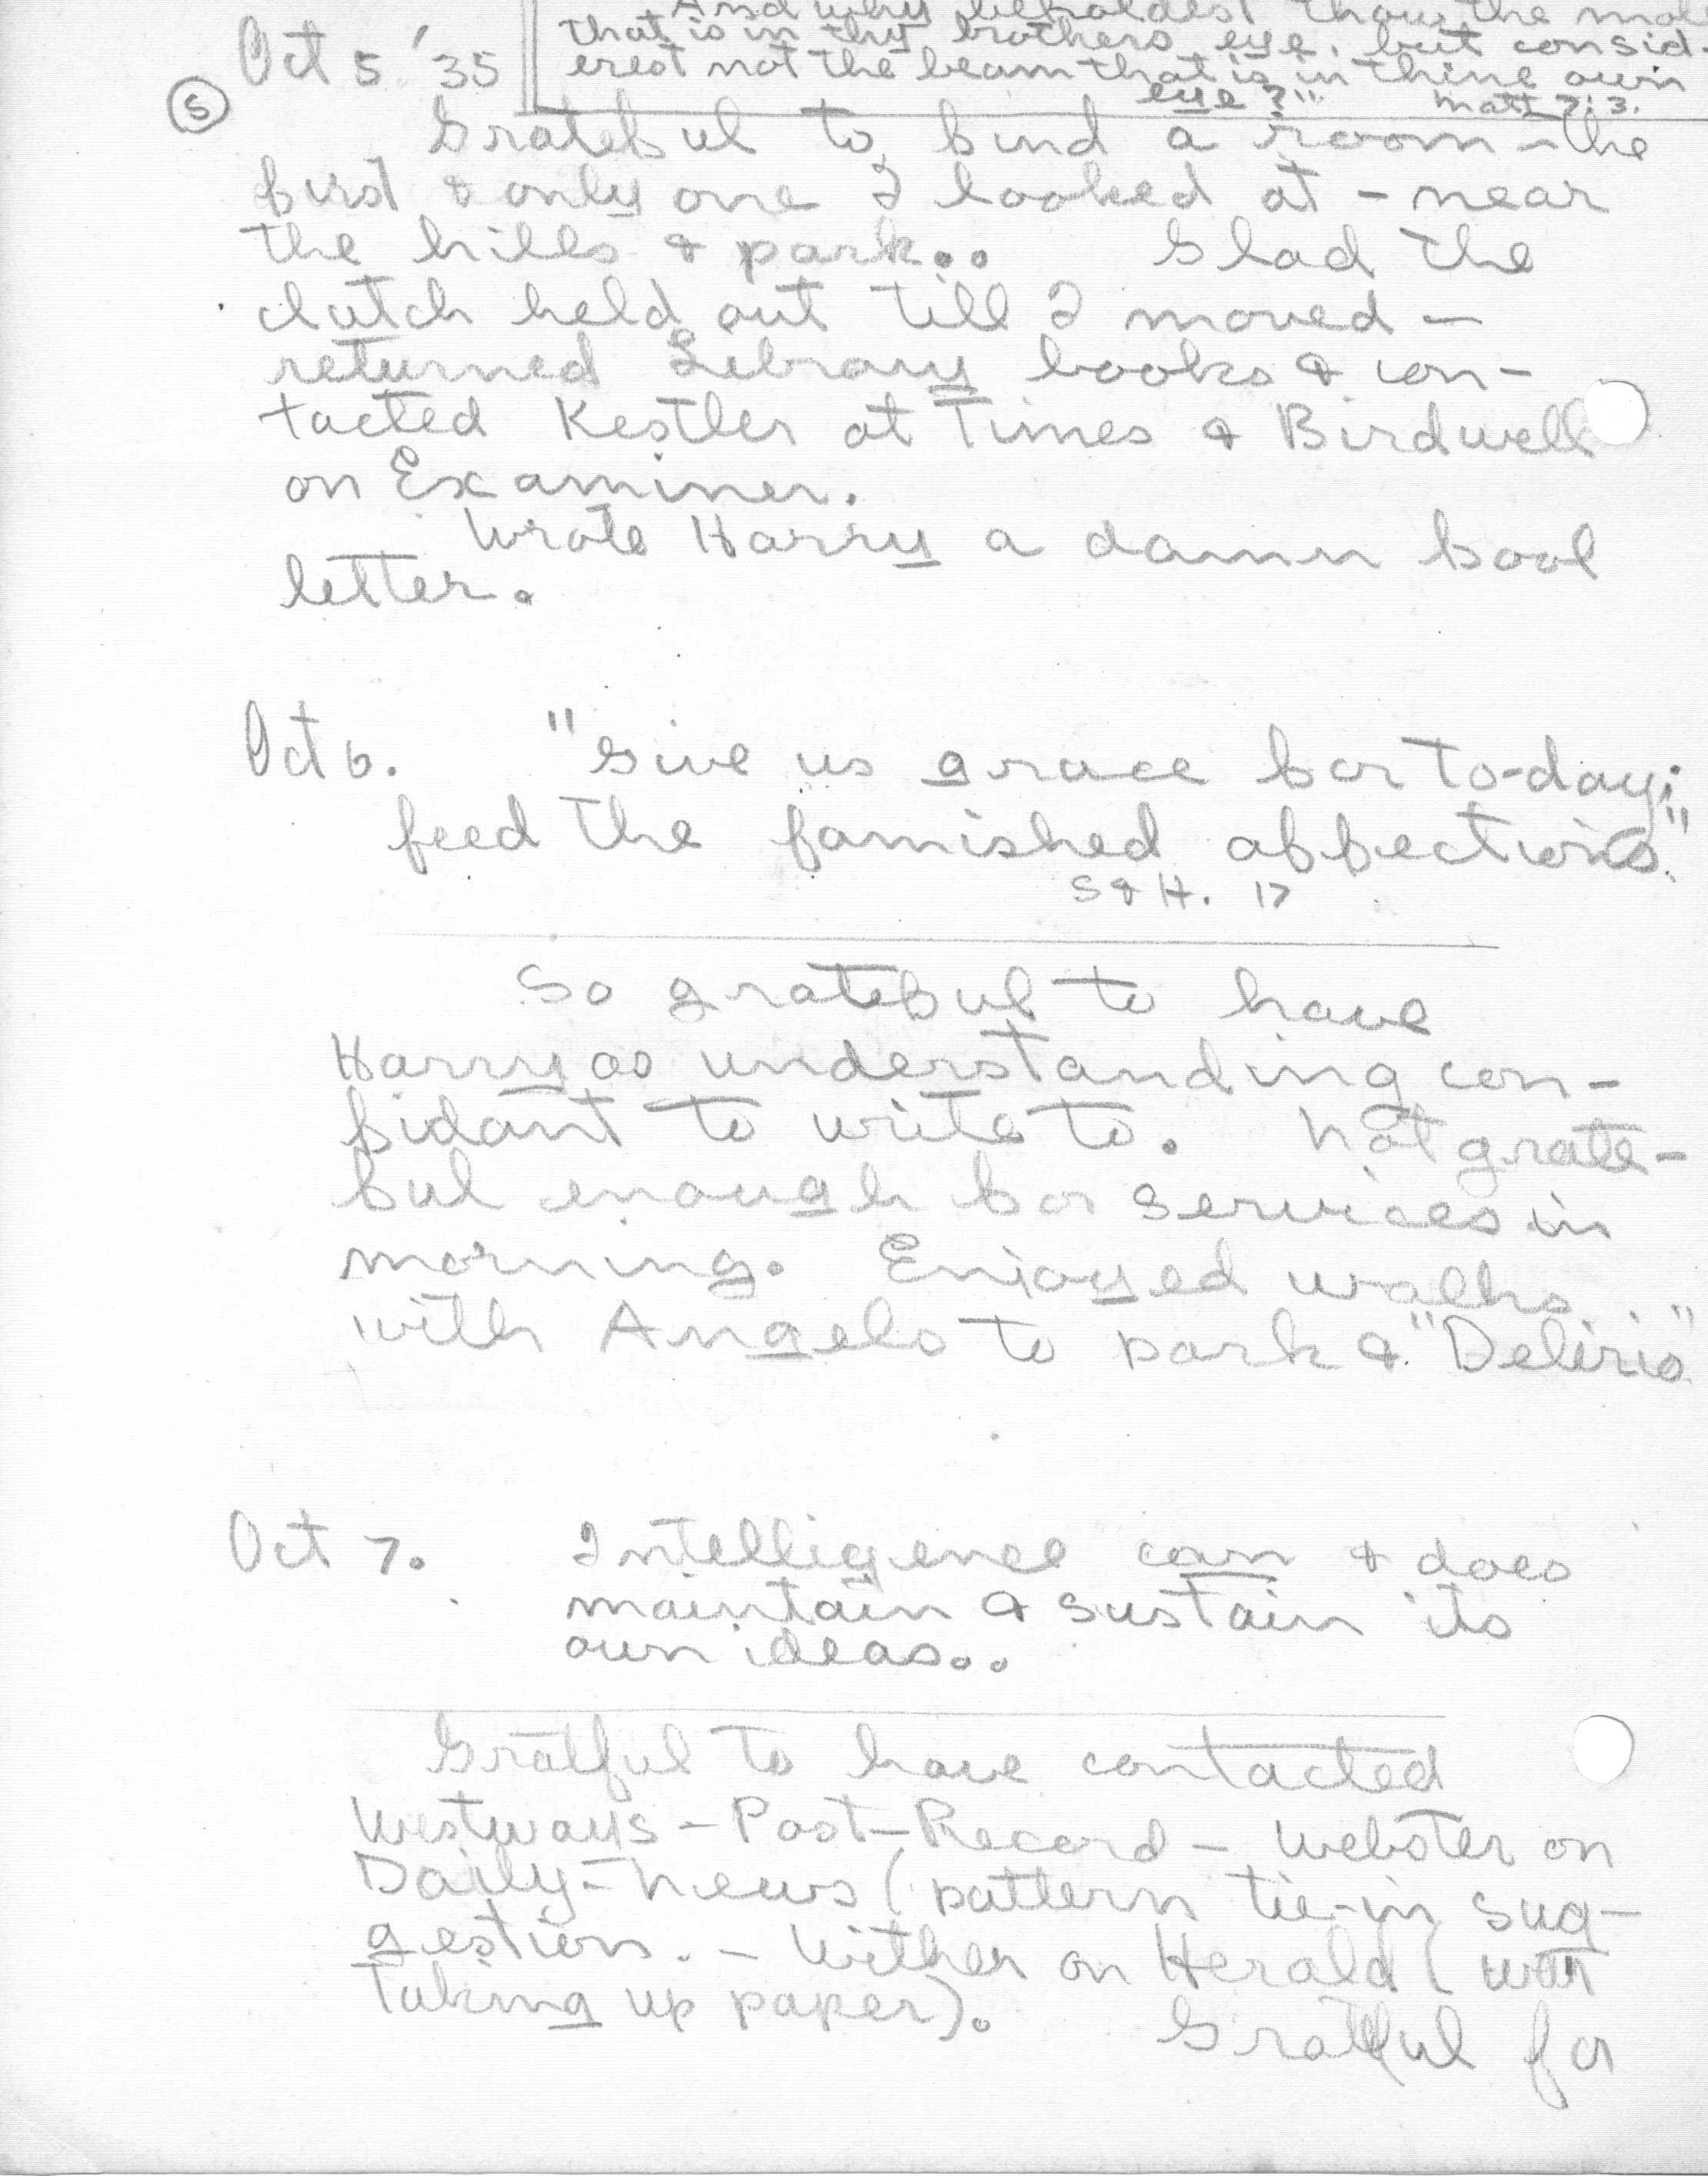 And why beholdest thou the mote
that is in thy brothers eye, but consid-
erest not the beam that is in thine own
eye?"
Matt 7:3.
Oct 5 '35
5
Grateful to find a room - the
first & only one I looked at - near
the hills & park.. Glad the
clutch held out till I moved -
returned Library books & con-
tacted Kestler at Times & Birdwell
on Examiner.
Wrote Harry a damn fool
letter.
Oct 6. "Give us grace for to-day;
feed the famished affections."
S & H. 17
So grateful to have
Harry as understanding con-
fidant to write to. Not grate-
ful enough for services in
morning. Enjoyed walks
with Angelo to park & "Delirio"
Oct 7. Intelligence can & does
maintain & sustain its
own ideas..
Gratful to have contacted
Westways - Post-Record - Webster on
Daily-News (pattern tie-in sug-
gestion. - Wither on Herald (war
taking up paper). Gratful for